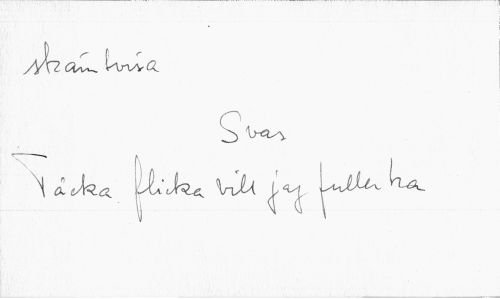 skämtvisa
Svar
Täcka flicka vill jag fuller ha